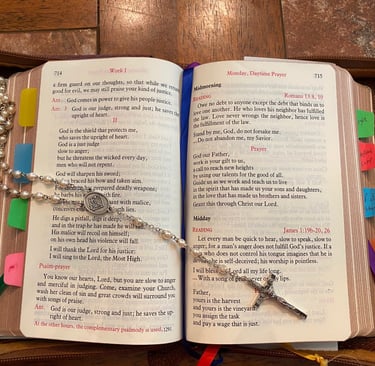 714 Week I
a firm guard on our thoughts, so that while we return
good for evil, we may still praise your kind of justice.
Ant. God comes in power to give his people justice.
Ant. 3 God is our judge, strong and just; he saves the
upright of heart.
II
God is the shield that protects me,
who saves the upright of heart.
God is a just judge
slow to anger;
but he threatens the wicked every day,
men who will not repent.
God will sharpen his sword;
braced his bow and taken aim.
prepared deadly weapons;
with malice,
He digs a pitfall, digs it deep;
and in the trap he has made he will fall.
His malice will recoil on himself;
on his own head his violence will fall.
I will thank the Lord for his justice:
I will sing to the Lord, the Most High.
Psalm-prayer
You know our hearts, Lord, but you are slow to anger
and merciful in judging. Come, examine your Church,
wash her clean of sin and great crowds will surround you
with songs of praise.
Ant. God is our judge, strong and just; he saves the up-
right of heart.
At the other hours, the complementary psalmody is used, 1291
Monday, Daytime Prayer 715
Midmorning
READING Romans 13:8, 10
Owe no debt to anyone except the debt that binds us to
love one another. He who loves his neighbor has fulfilled
the law. Love never wrongs the neighbor, hence love is
the fulfillment of the law.
Stand by me, God, do not forsake me.
— Do not abandon me, my Savior.
Prayer
God our Father,
work is your gift to us,
a call to reach new heights
by using our talents for the good of all.
Guide us as we work and teach us to live
in the spirit that has made us your sons and daughters,
in the love that has made us brothers and sisters.
Grant this through Christ our Lord.
Midday
READING James 1:19b-20, 26
Let every man be quick to hear, slow to speak, slow to
anger; for a man's anger does not fulfill God's justice. If a
man who does not control his tongue imagines that he is
he is self-deceived; his worship is pointless.
I will bless Lord all my life long.
— With a song of
Father,
yours is the harvest
and yours is the vineyard:
you assign the task
and pay a wage that is just.